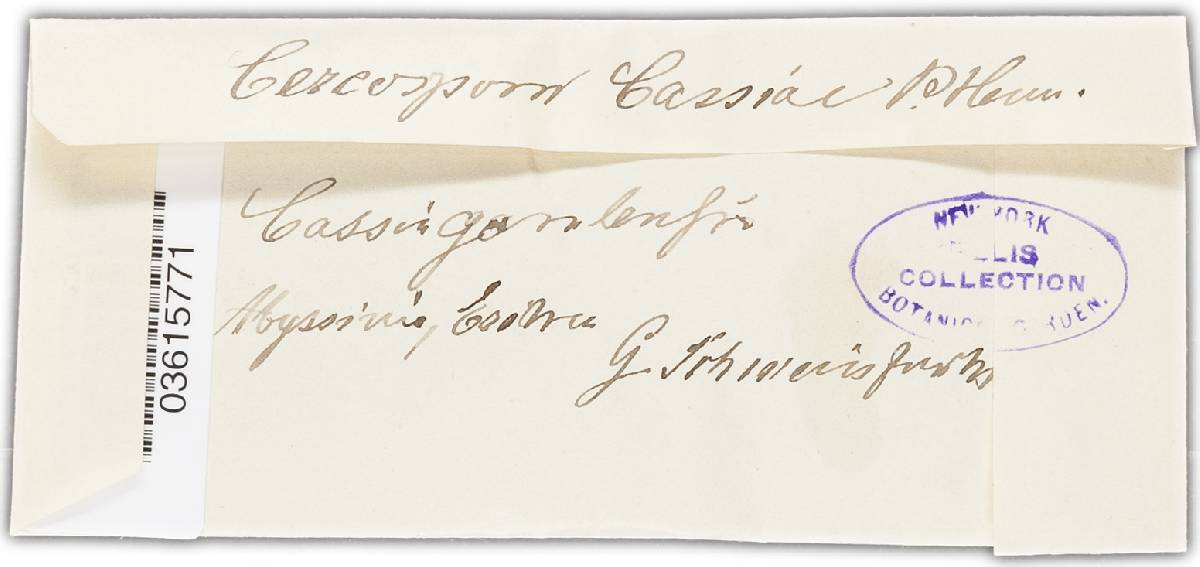 Cercospora Cassiae P. Henn.
Cassia goratensis
Abyssinia, Eritrea
G Schweinfurth
NEW YORK
ELLIS
COLLECTION
BOTANICAL GARDEN.
03615771